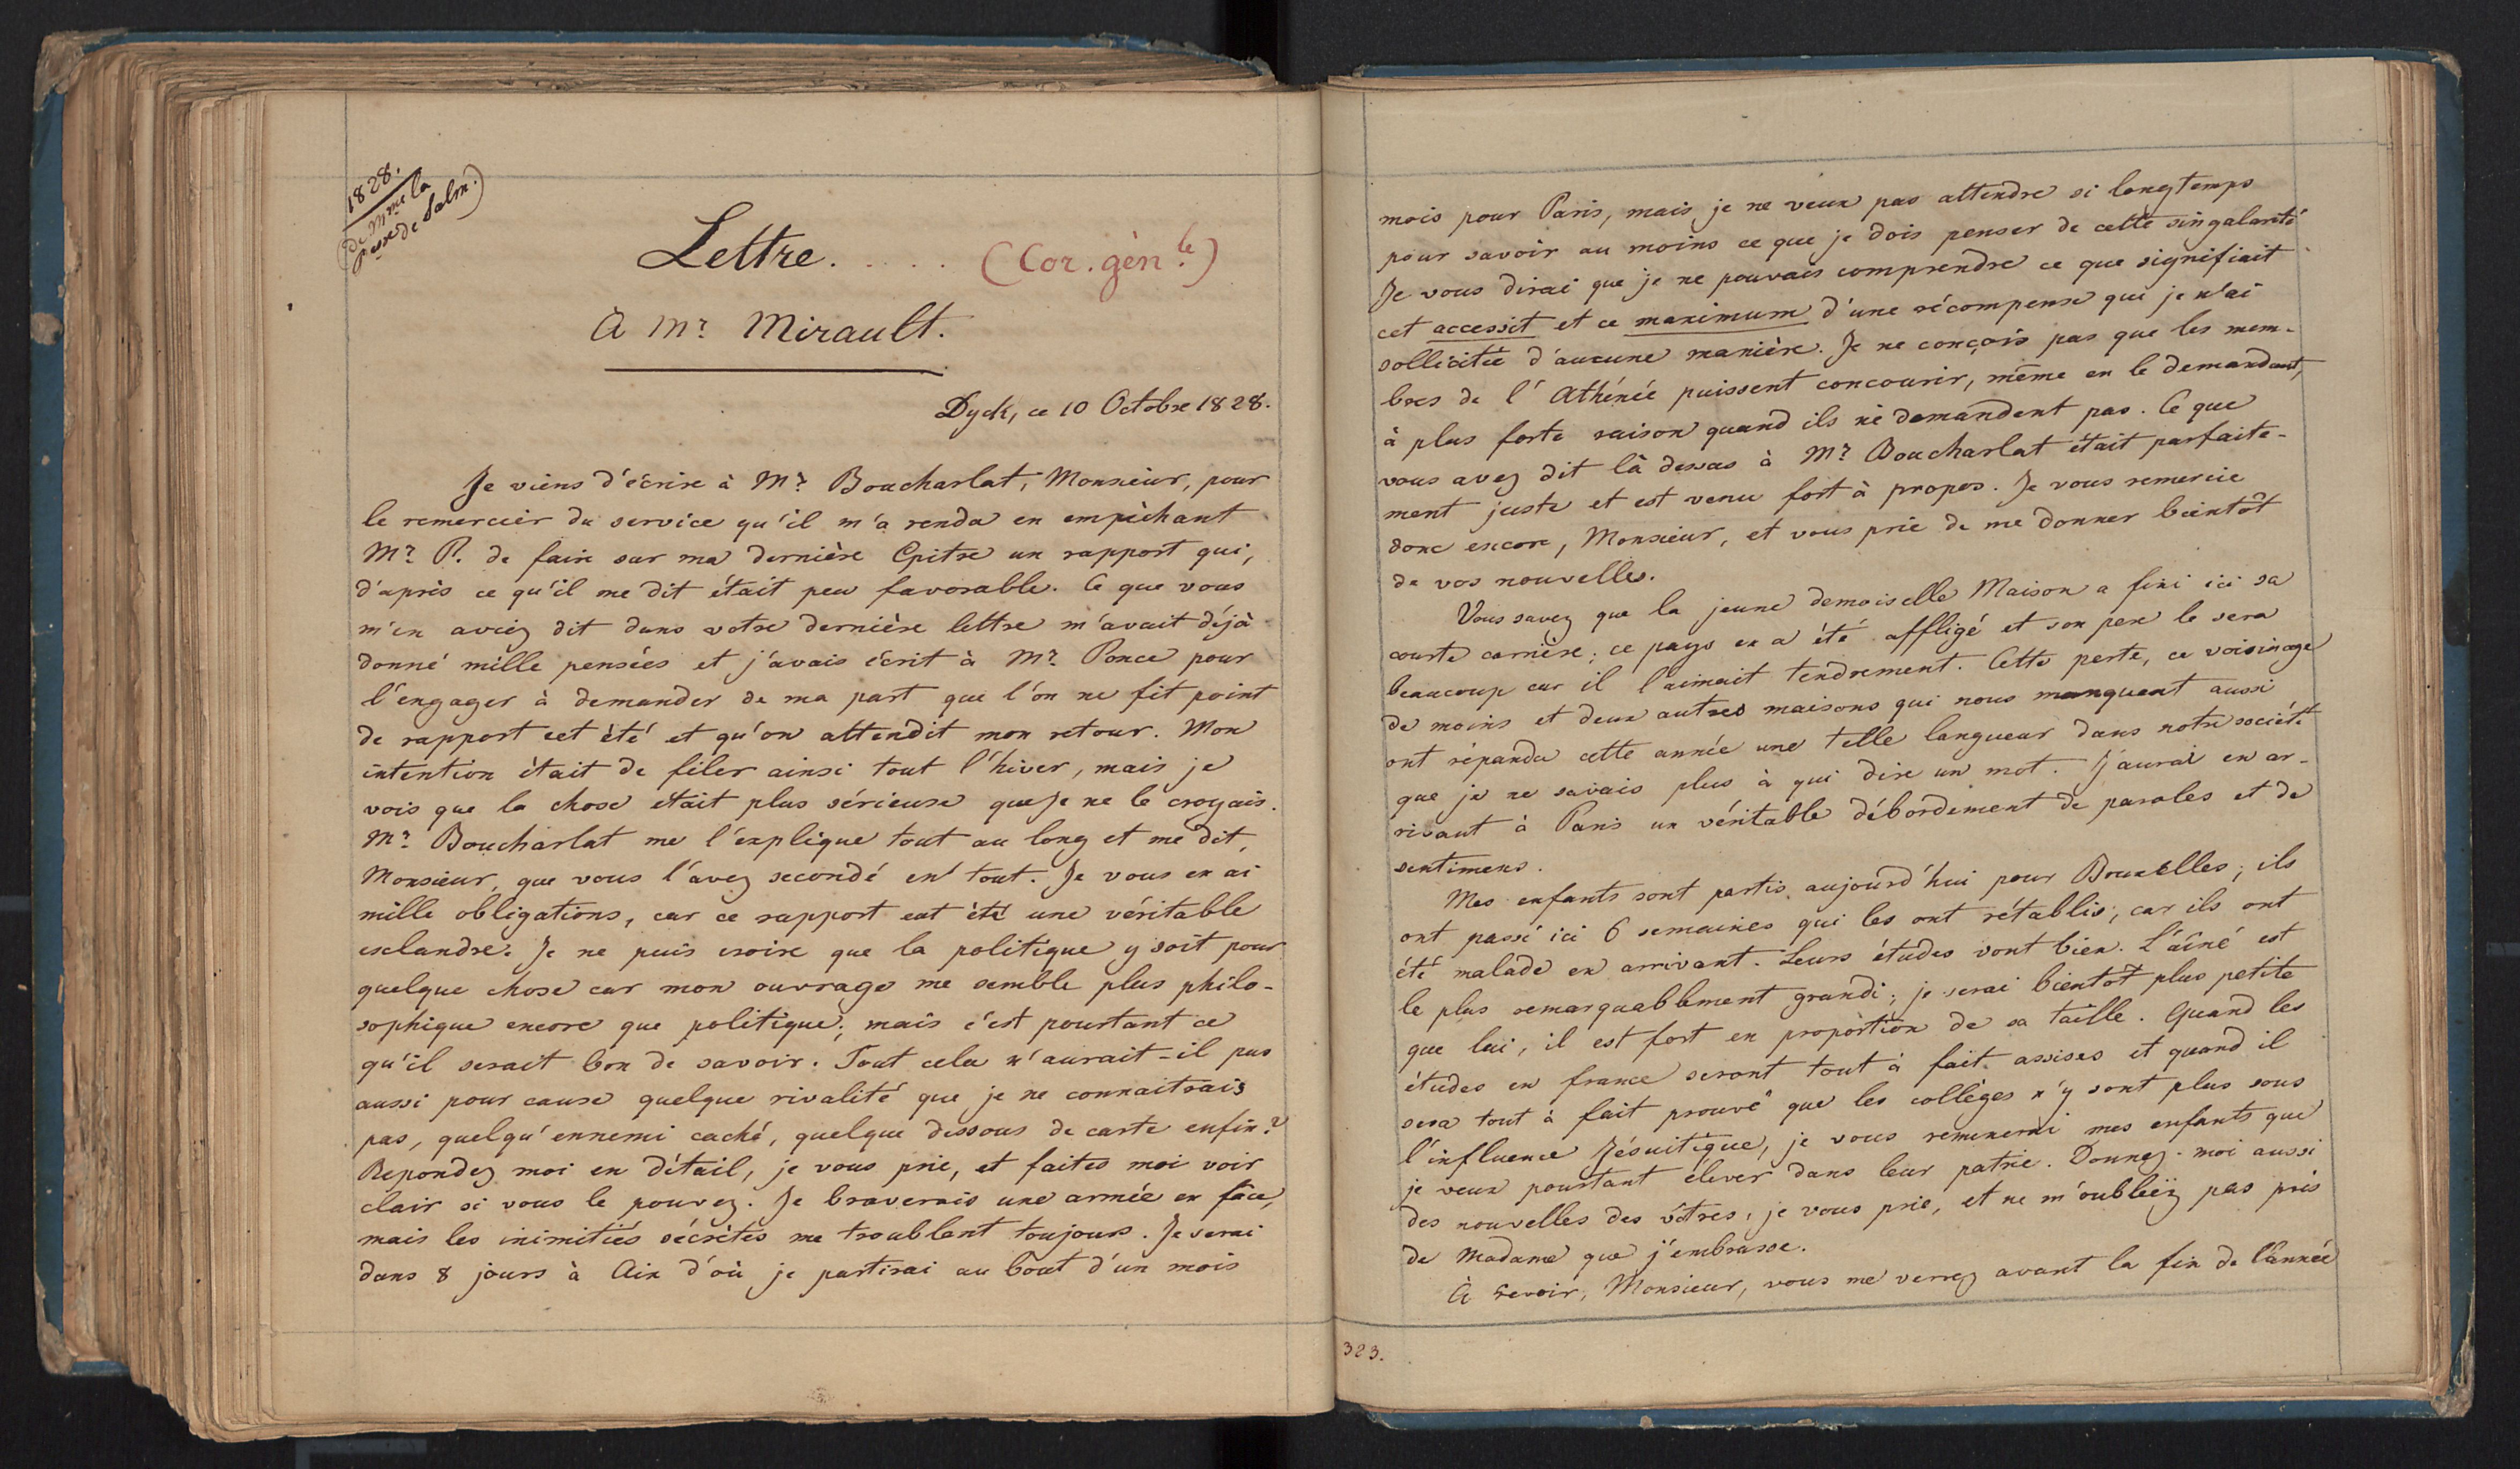 1828.
(de Mme la
Pesse de Salm.)
Lettre. . . . . (Cor. gèn.le)
À Mr. Mirault.
Dyck, ce 10 Octobre 1828.
Je viens d'écrire à Mr. Boucharlat, Monsieur, pour
le remercier du service qu'il m'a rendu en empêchant
Mr. P. de faire sur ma dernière Epitre un rapport qui,
d'après ce qu'il me dit était peu favorable. Ce que vous
m'en aviez dit dans votre dernière lettre m'avait déjà
donné mille pensées et j'avais écrit à Mr. Ponce pour
l'engager à demander de ma part que l'on ne fit point
de rapport cet été et qu'on attendit mon retour. Mon
intention était de filer ainsi tout l'hiver, mais je
vois que la chose était plus sérieuse que je ne le croyais.
Mr. Boucharlat me l'explique tout au long et me dit,
Monsieur, que vous l'avez secondé en tout. Je vous en ai
mille obligations, car ce rapport eut été une véritable
esclandre. Je ne puis croire que la politique y soit pour
quelque chose car mon ouvrage me semble plus philo-
sophique encore que politique; mais c'est pourtant ce
qu'il serait bon de savoir. Tout cela n'aurait-il pas
aussi pour cause quelque rivalité que je ne connaitrais
pas, quelqu'ennemi caché, quelque dessous de carte enfin?
Repondez moi en détail, je vous prie, et faites moi voir
clair si vous le pouvez. Je braverais une armée en face,
mais les inimitiés sécrètes me troublent toujours. Je serai
dans 8 jours à Aix d'où je partirai au bout d'un mois
mois pour Paris, mais je ne veux pas attendre si longtemps
pour savoir au moins ce que je dois penser de cette singularité
Je vous dirai que je ne pouvais comprendre ce que signifiait
cet accessit et ce maximum d'une récompense que je n'ai
sollicitée d'aucune manière. Je ne conçois pas que les mem-
bres de l'Athénée puissent concourir, même en le demandant,
à plus forte raison quand ils ne demandent pas. Ce que
vous avez dit là dessus à Mr. Boucharlat était parfaite-
ment juste et est venu fort à propos. Je vous remercie
donc encore, Monsieur, et vous prie de me donner bientôt
de vos nouvelles.
Vous savez que la jeune demoiselle Maison a fini ici sa
courte carrière; ce pays en a été affligé et son pere le sera
beaucoup car il l'aimait tendrement. Cette perte, ce voisinage
de moins et deux autres maisons qui nous manquent aussi
ont répandu cette année une telle langueur dans notre société
que je ne savais plus à qui dire un mot. J'aurai en ar-
rivant à Paris un véritable débordement de paroles et de
sentimens.
Mes enfants sont partis aujourd'hui pour Bruxelles; ils
ont passé ici 6 semaines qui les ont rétablis, car ils ont
été malade en arrivant. Leurs études vont bien. L'aîné est
le plus remarquablement grandi; je serai bientôt plus petite
que lui, il est fort en proportion de sa taille. Quand les
études en france seront tout à fait assises et quand il
sera tout à fait prouvé que les collèges n'y sont plus sous
l'influence Jésuitique, je vous remenerai mes enfants que
je veux pourtant élever dans leur patrie. Donnez-moi aussi
des nouvelles des vôtres, je vous prie, et ne m'oubliëz pas près
de Madame que j'embrasse.
À revoir, Monsieur, vous me verrez avant la fin de l'année
323.